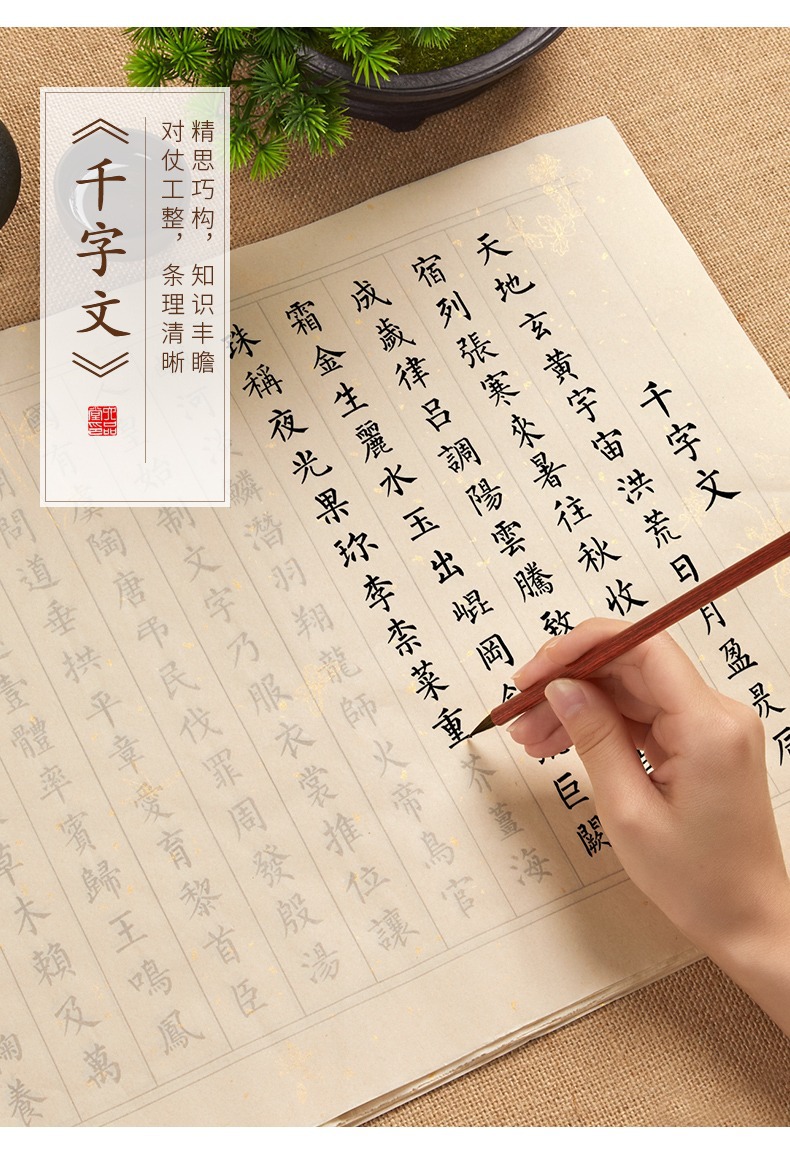 《千字文》
精思巧构，知识丰瞻
对仗工整，条理清晰
六品堂印
千字文
天地玄黃宇宙洪荒日月盈昃辰
宿列張寒來暑往秋收
成歲律呂調陽雲騰致
霜金生麗水玉出崐岡巨闕
珠稱夜光果珎李柰菜重芥薑海
河鱗潛羽翔龍師火帝鳥官
始制文字乃服衣裳推位讓
國有虞陶唐弔民伐罪周發殷湯
問道垂拱平章愛育黎首臣
壹體率賓歸王鳴鳳
草木賴及萬
養